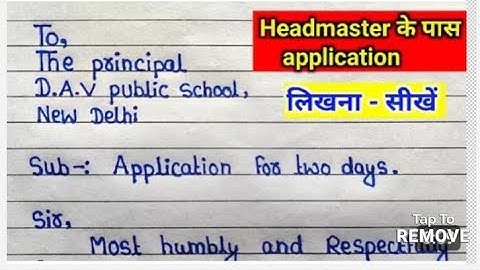 To,
The principal
D.A.V public school,
New Delhi
Headmaster के पास
application
लिखना - सीखें
Sub-: Application for two days.
Sir,
Most humbly and Respectfully
Tap To
REMOVE